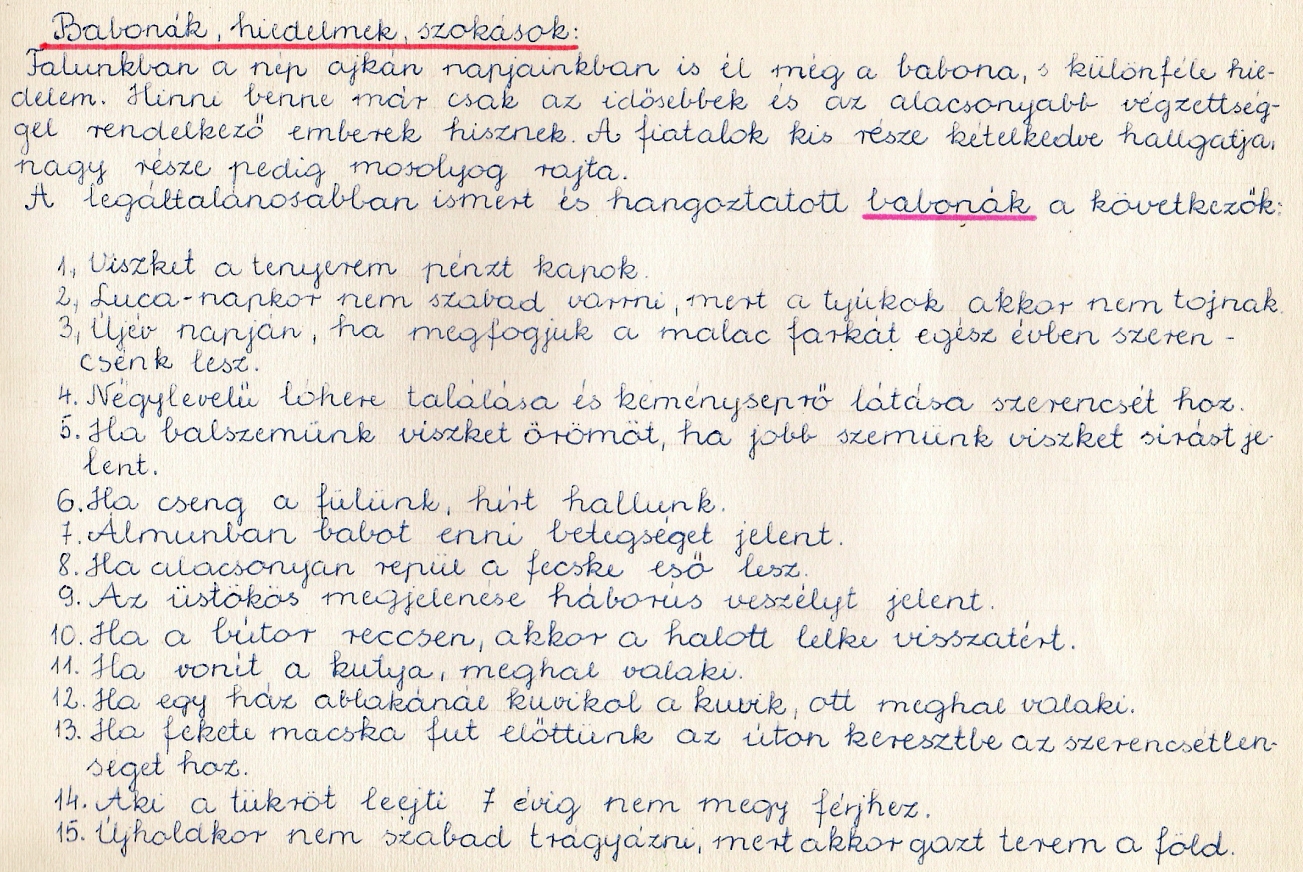 Babonák, hiedelmek, szokások:
Falunkban a nép ajkán napjainkban is él még a babona, s különféle hie-
delem. Hinni benne már csak az idősebbek és az alacsonyabb végzettség-
gel rendelkező emberek hisznek. A fiatalok kis része kételkedve hallgatja,
nagy része pedig mosolyog rajta.
A legáltalánosabban ismert és hangoztatott babonák a következők:
1, Viszket a tenyerem pénzt kapok.
2, Luca-napkor nem szabad varrni, mert a tyúkok akkor nem tojnak.
3, Újév napján, ha megfogjuk a malac farkát egész évben szeren-
csénk lesz.
4. Négylevelű lóhere találása és kéményseprő látása szerencsét hoz.
5. Ha balszemünk viszket örömöt, ha jobb szemünk viszket sirást je-
lent.
6. Ha cseng a fülünk, hírt hallunk.
7. Álmunban babot enni betegséget jelent.
8. Ha alacsonyan repül a fecske eső lesz.
9. Az üstökös megjelenése háborús veszélyt jelent.
10. Ha a bútor reccsen, akkor a halott lelke visszatért.
11. Ha vonít a kutya, meghal valaki.
12. Ha egy ház ablakánál kuvikol a kuvik, ott meghal valaki.
13. Ha fekete macska fut előttünk az úton keresztbe az szerencsétlen-
séget hoz.
14. Aki a tükröt leejti 7 évig nem megy férjhez.
15. Újholdkor nem szabad trágyázni, mert akkor gazt terem a föld.